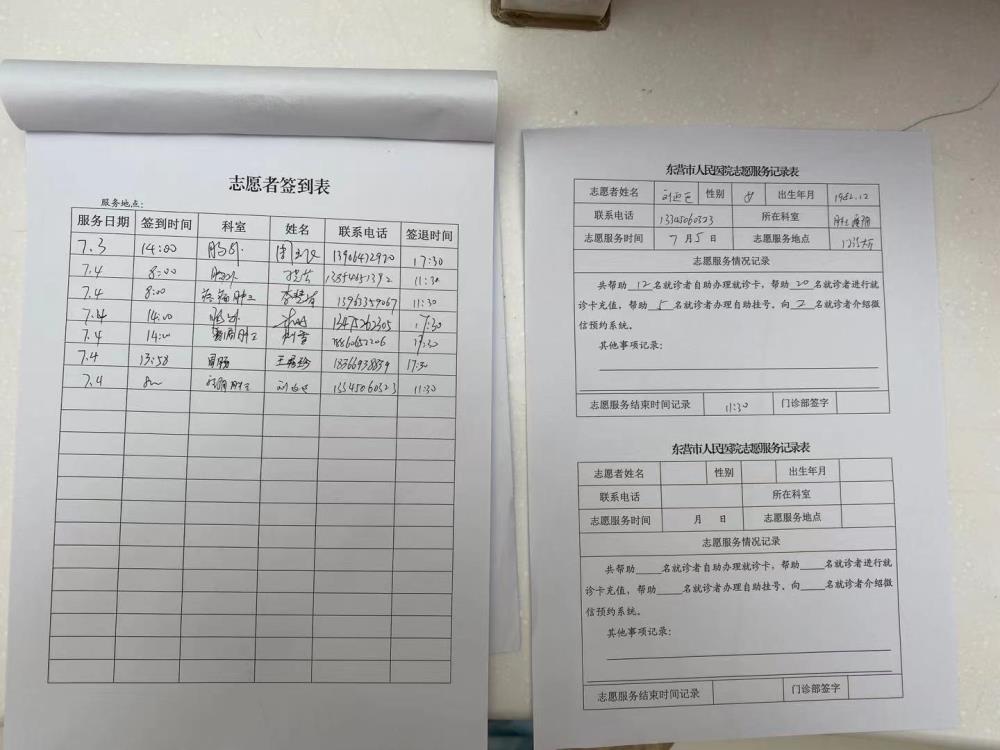 志愿者签到表
服务地点：
服务日期 签到时间 科室 姓名 联系电话 签退时间
7.3 14:00 13906472920 17:30
7.4 8:00 13854651392 11:30
7.4 8:00 13963359067 11:30
7.4 14:00 13475262305 17:30
7.4 14:00 18860652206 17:30
7.4 13:58 胃肠 18766938859 17:30
7.4 13345060323 11:30
东营市人民医院志愿服务记录表
志愿者姓名 性别 出生年月 1982.12
联系电话 13345060323 所在科室
志愿服务时间 7月5日 志愿服务地点
志愿服务情况记录
共帮助 12 名就诊者自助办理就诊卡，帮助 20 名就诊者进行就
诊卡充值，帮助 5 名就诊者办理自助挂号。向 2 名就诊者介绍微
信预约系统。
其他事项记录：
志愿服务结束时间记录 11:30 门诊部签字
东营市人民医院志愿服务记录表
志愿者姓名 性别 出生年月
联系电话 所在科室
志愿服务时间 月 日 志愿服务地点
志愿服务情况记录
共帮助____名就诊者自助办理就诊卡，帮助____名就诊者进行就
诊卡充值，帮助____名就诊者办理自助挂号。向____名就诊者介绍微
信预约系统。
其他事项记录：
志愿服务结束时间记录 门诊部签字